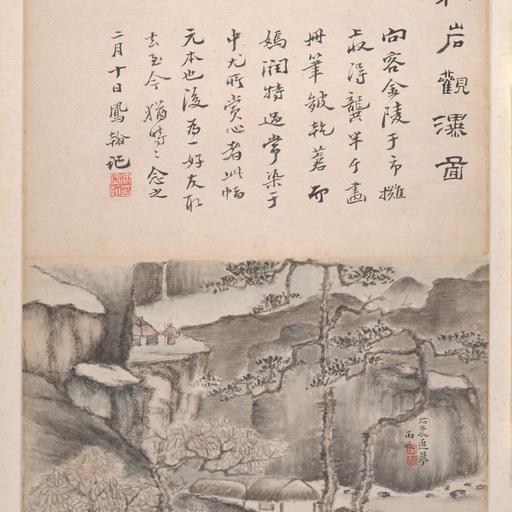 岩觀瀑圖
向客金陵于市攤
上收得龔半千畫
冊筆皴乾著而
嫣潤特過常染于
中尤所賞心者此幅
元本也後為一好友取
去至今猶時〻念之
二月十日鳳翰記
追摹